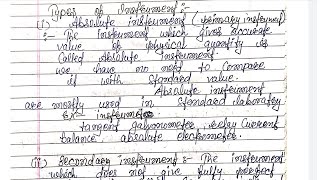 Types of Instrument :-
(i) Absolute instrument (primary instrument)
:- The Instrument which gives accurate
value of physical quantity is
Called Absolute Instrument
we have no need to compare
it with Standard value.
Absolute instrument
are mostly used in Standard laboratory
Ex- instrument
tangent galvanometer, Relay Current
balance, absolute electrometer.
(ii) Secondary instrument :- The instrument
which does not give fully perfect